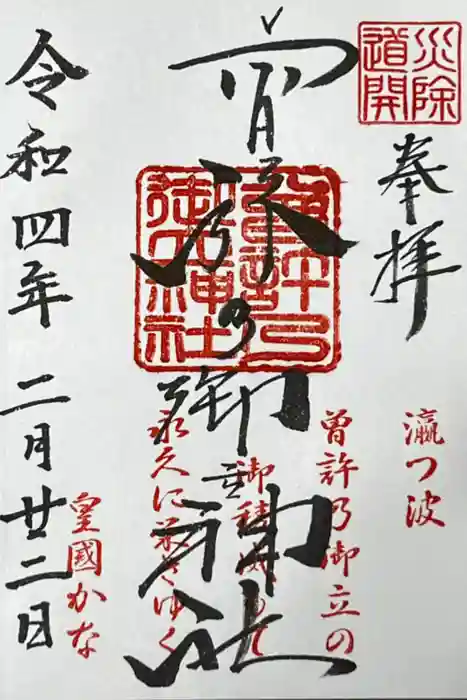 災除
道開
奉拝
瀛つ波
曽許乃御立の
御
曽許乃御立神社
曽許乃御立神社
永久に栄さゆく
皇國かな
令和四年二月廿二日